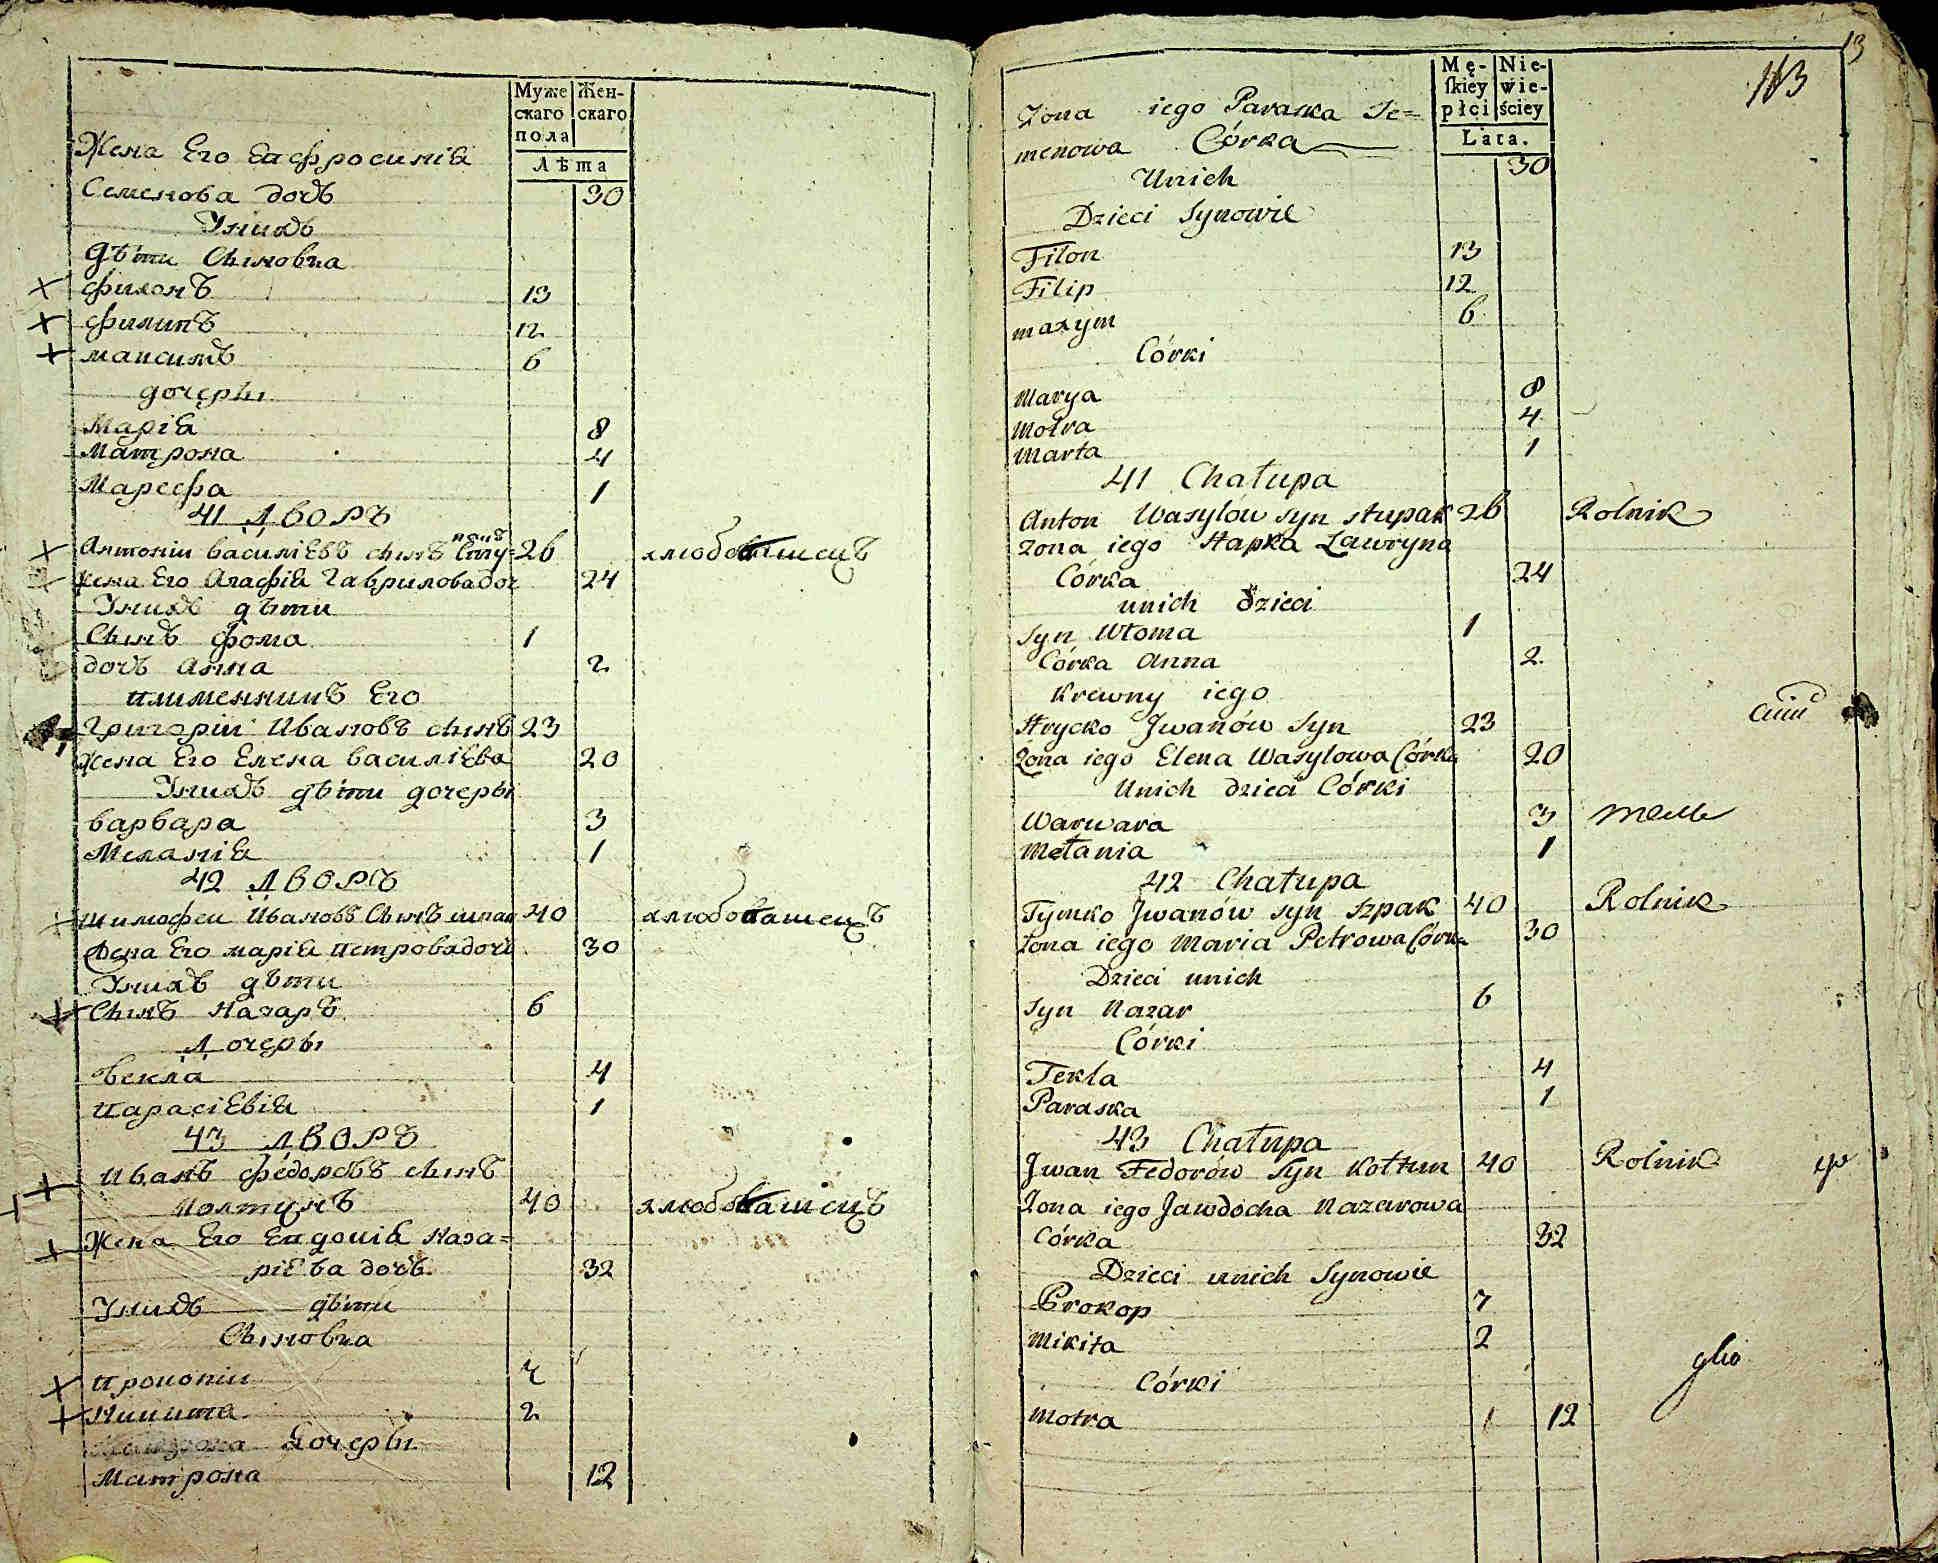 Муже
скаго
пола
Жен-
скаго
Лѣта
Жена Его Епфросиніа
Семенова дочь 30
Унихъ
дѣти Сыновиа
филонъ 13
филипъ 12
максимъ 6
дочеры
Маріа 8
Матрона 4
Марефа 1
41 Дворъ
Антоніи василіЕвъ сынъ Сту-пакъ 26 хлюбопашецъ
жена Его Агафіа Гавриловадоч 24
Унихъ дѣти
Сынъ фома 1
дочъ анна 2
племенникъ Его
Григоріи Ивановъ сынъ 23
жена Его Елена василіЕва 20
Унихъ дѣти дочеры
варвара 3
Меланіа 1
42 Дворъ
тимофеи Ивановъ Сынъ шпак 40 хлюбопашецъ
жена Его маріа петровадочь 30
Унихъ дѣти
Сынъ Назаръ 6
Дочеры
векла 4
парасіЕвіа 1
43 Дворъ
Иванъ федоровъ сынъ
Колтунъ 40 хлюбопашецъ
Жена Его Евдокіа Наза=
ріЕва дочъ 32
Унихъ дѣти
Сыновиа
прокопіи 7
Никита 2
Дочеры
Матрона 12
13
113
Mę-
skiey
płci
Nie-
wie-
ściey
Lata.
Żona iego Paraska Se=
menowa Córka 30
Unich
Dzieci Synowie
Filon 13
Filip 12
maxym 6
Córki
Marya 8
Motra 4
Marta 1
41 Chałupa
Anton Wasylów syn stupak 26 Rolnik
żona iego Hapka Ławryna
Córka 24
unich dzieci
Syn Wtoma 1
Córka Anna 2
Krewny iego
Hrycko Jwanów Syn 23
Żona iego Elena Wasylowa Córka 20
Unich dzieci Córki
Warwara 3
Mełania 1
42 Chałupa
Tymko Jwanów syn Szpak 40 Rolnik
żona iego Maria Petrowa Córka 30
Dzieci unich
Syn Nazar 6
Córki
Tekla 4
Paraska 1
43 Chałupa
Jwan Fedorów Syn Kołtun 40 Rolnik
Żona iego Jawdocha Nazarowa
Córka 32
Dzieci unich Synowie
Prokop 7
Mikita 2
Córki
Motra 12